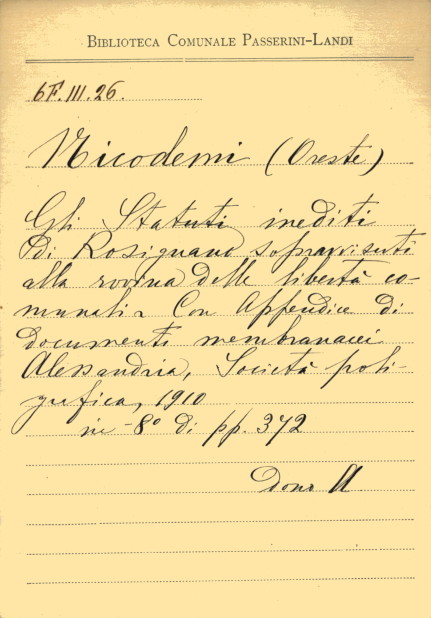 BIBLIOTECA COMUNALE PASSERINI-LANDI
6F.III.26.
Nicodemi (Oreste)
Gli Statuti inediti
di Rosignano sopravvissuti
alla rovina delle libertà co-
munali - Con Appendice di
documenti membranacei
Alessandria, Società poli-
grafica, 1910
in -8° di pp. 372
Dono A